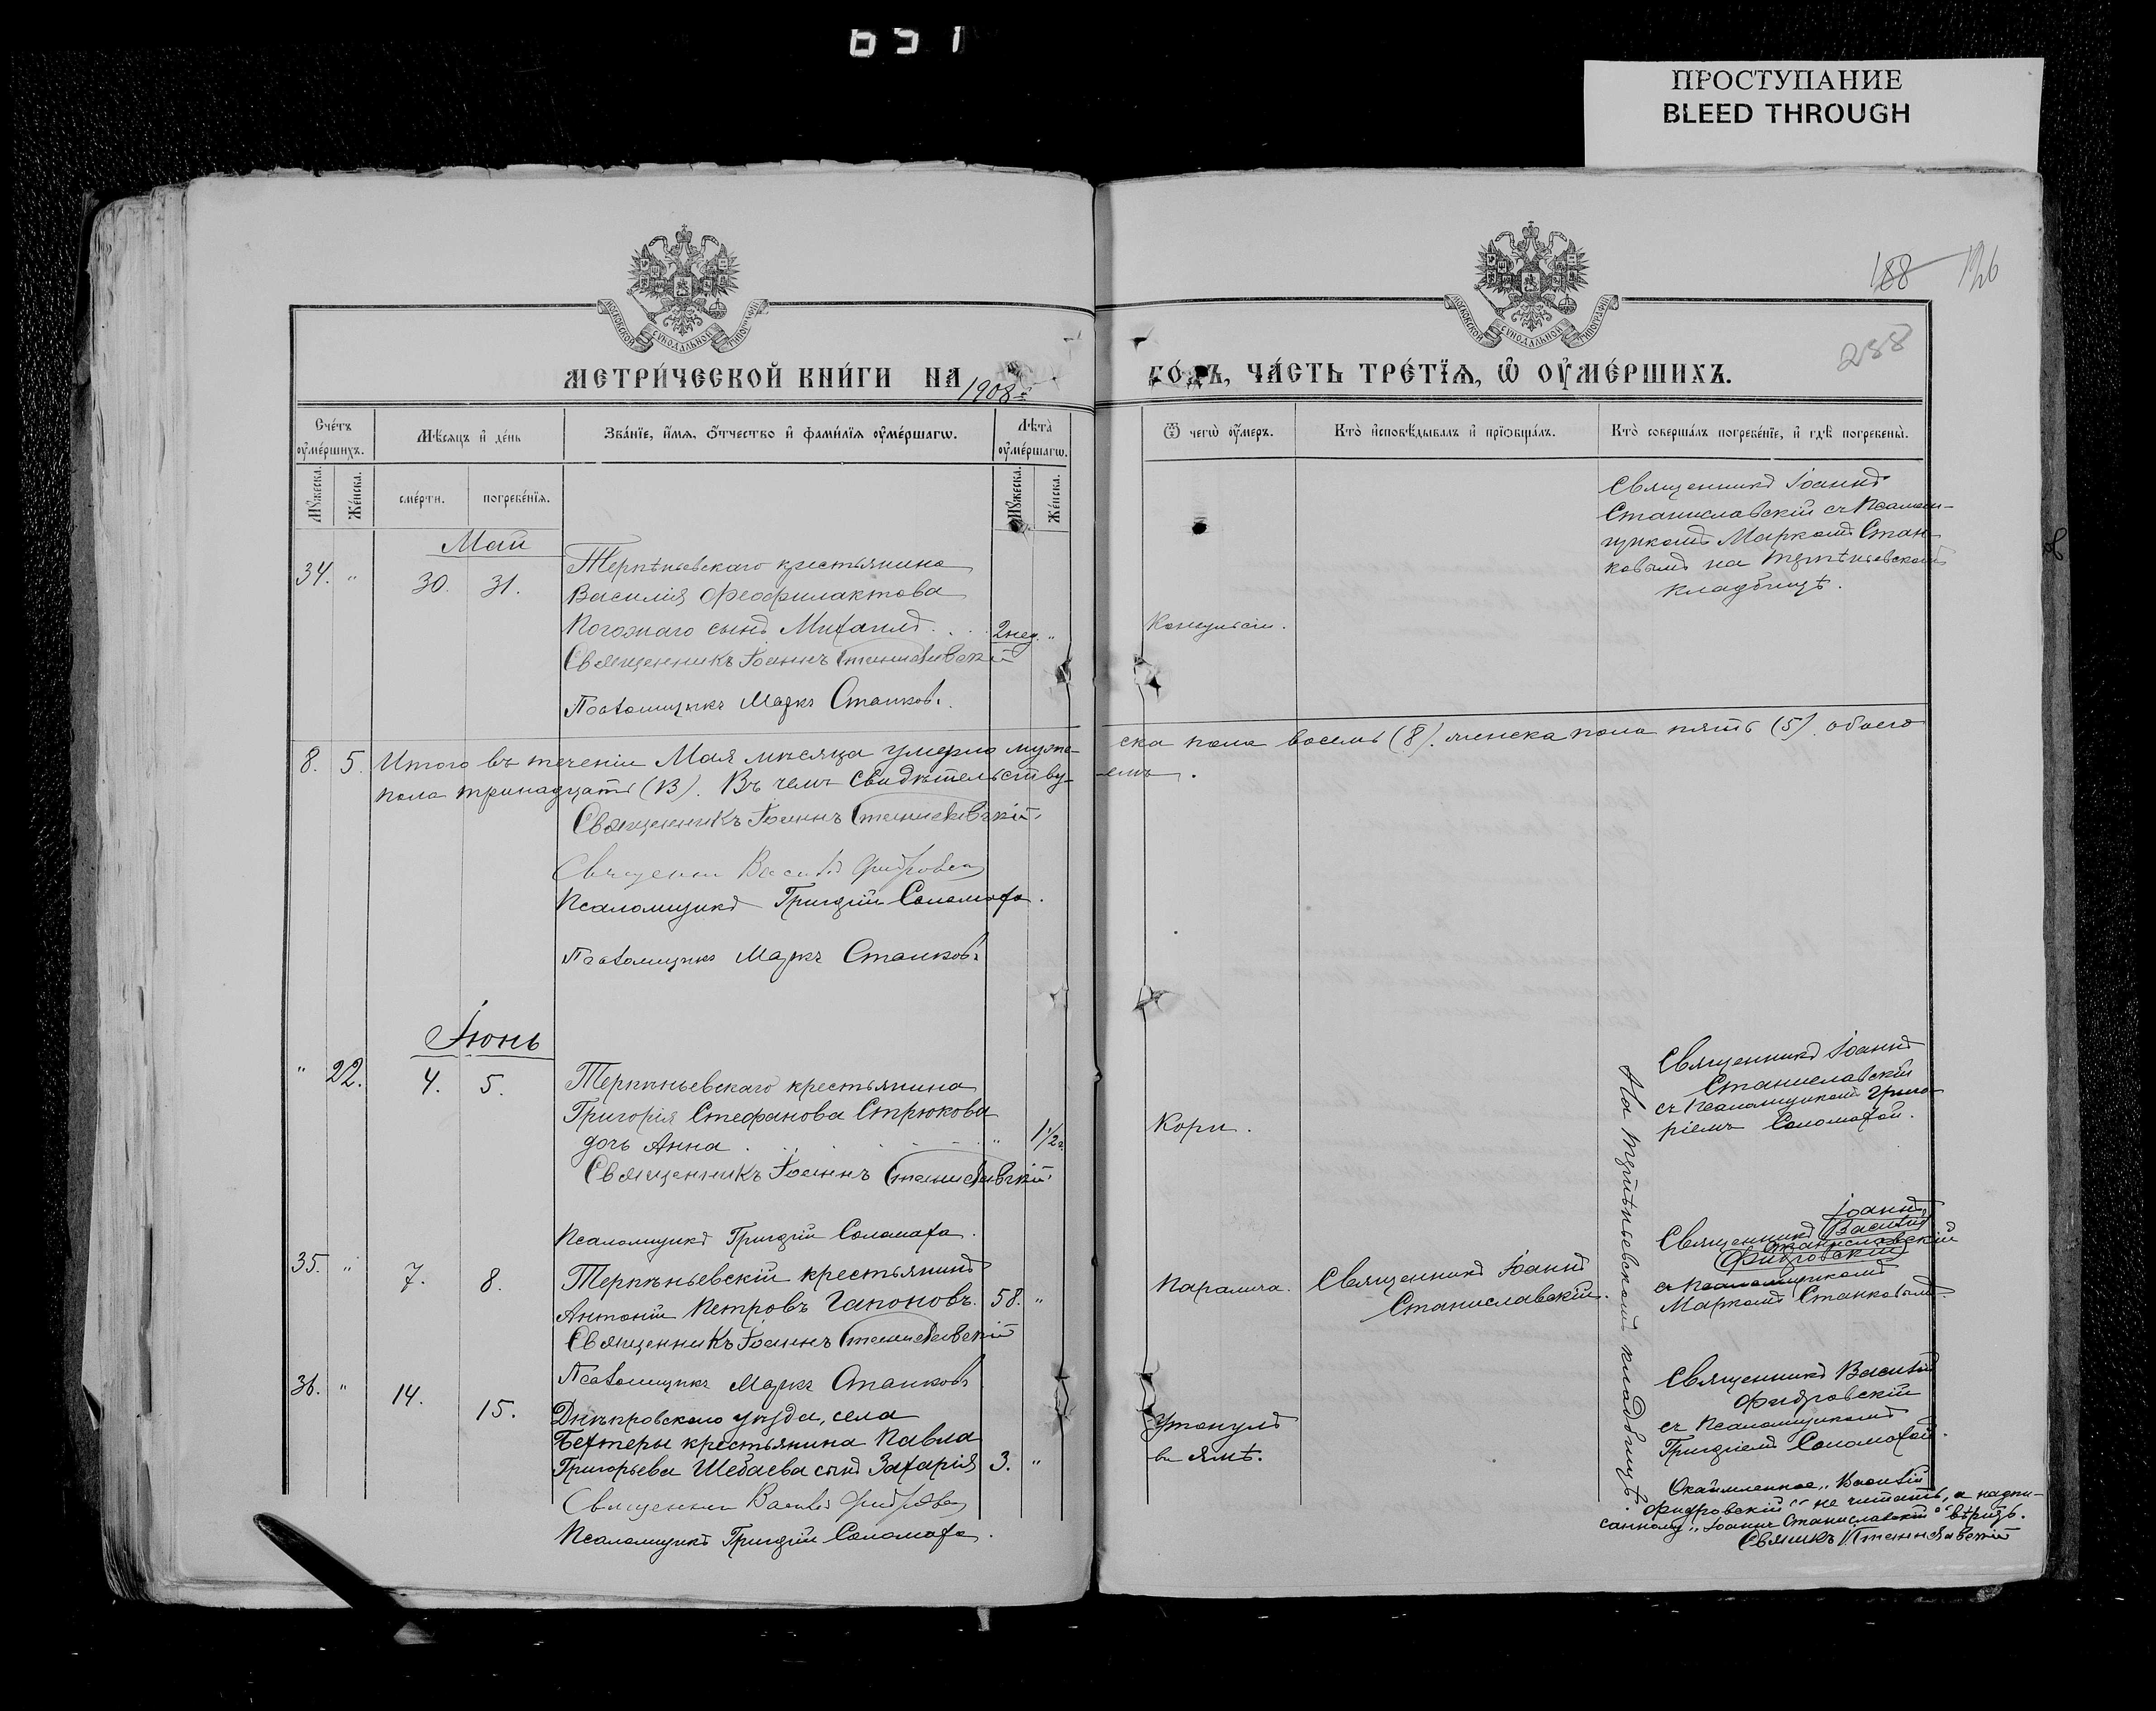 651
ПРОСТУПАНИЕ
BLEED THROUGH
188 126
288
МЕТРИ́ЧЕСКОЙ КНИ́ГИ НА 1908 ГО́ДЪ, ЧА́СТЬ ТРЕ́ТЇѦ, Ѡ ОУ҆МЕ́РШИХЪ.
Сче́тъ оу҆ме́ршихъ.
Мꙋ́жеска.
Же́нска.
Мѣ́сѧцъ и҆ де́нь
сме́рти.
погребе́нїѧ.
Зва́нїе, и҆́мѧ, ѻ҆́тчество и҆ фами́лїѧ оу҆ме́ршагѡ.
Лѣ́та оу҆ме́ршагѡ.
Мꙋ́жеска.
Же́нска.
Ѿ чегѡ̀ оу҆́меръ.
Кто̀ и҆сповѣ́дывалъ и҆ прїѡбща́лъ.
Кто̀ соверша́лъ погребе́нїе, и҆ гдѣ̀ погребены̀.
Май
34. " 30. 31.
Терпѣньевскаго крестьянина
Василія Феофилактова
Погожаго сынъ Михаилъ . . . 2 нед. "
Священникъ Іоаннъ Станиславскій
Псаломщикъ Маркъ Станковъ.
Конвульсіи.
Священникъ Іоаннъ
Станиславскій съ Псалом-
щикомъ Маркомъ Стан-
ковымъ на Терпѣньевскомъ
кладбищѣ.
8. 5. Итого въ теченіи Мая мѣсяца умерло муже-
ска пола восемь (8). женска пола пять (5). обоего
пола тринадцать (13). Въ чемъ свидѣтельству-
емъ.
Священникъ Іоаннъ Станиславскій
Василій
Псаломщикъ Григорій Соломаха.
Псаломщикъ Маркъ Станковъ
Іюнь
" 22. 4. 5.
Терпѣньевскаго крестьянина
Григорія Стефанова Стрюкова
дочь Анна . . . . " 1½ г.
Священникъ Іоаннъ Станиславскій
Псаломщикъ Григорій Соломаха.
Кори.
Священникъ Іоаннъ
Станиславскій
съ Псаломщикомъ Григо-
ріемъ Соломахой.
На Терпѣньевскомъ кладбищѣ.
35. " 7. 8.
Терпѣньевскій крестьянинъ
Антоній Петровъ Гапоновъ. 58. "
Священникъ Іоаннъ Станиславскій
Псаломщикъ Маркъ Станковъ
Паралича.
Священникъ Іоаннъ
Станиславскій.
Іоаннъ
Священникъ Василій
Станиславскій
съ Псаломщикомъ
Маркомъ Станковымъ.
36. " 14. 15.
Днѣпровскаго уѣзда, села
Бехтеры крестьянина Павла
Григорьева Шебаева сынъ Захарія 3. "
Василій
Псаломщикъ Григорій Соломаха.
Утонулъ
въ ямѣ.
Священникъ Василій
съ Псаломщикомъ
Григоріемъ Соломахой.
Окаймленное „Василій
не читать, а надпи-
санному „Іоаннъ Станиславскій" вѣрить.
Свящ-икъ І. Станиславскій